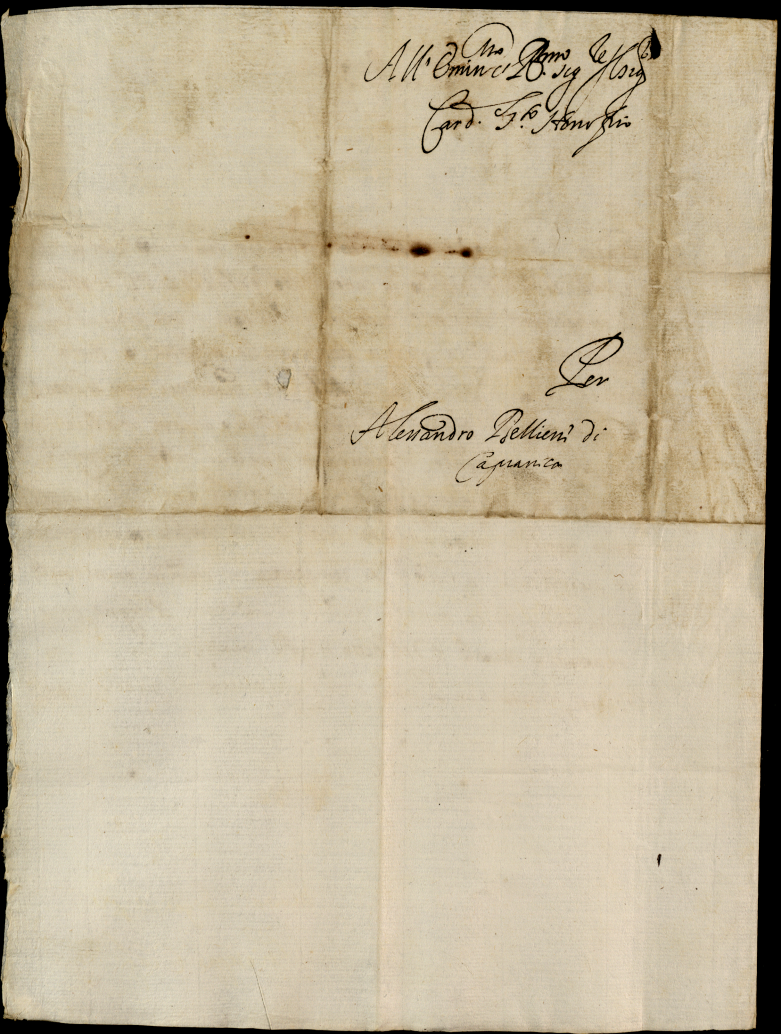 All' Emin.mo et R.mo Sig.re
Card. S.to Honofrio
Per
Alessandro Pellieni di
Capranica